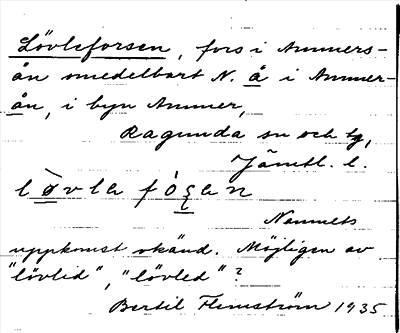 Lövleforsen, fors i Ammers-
ån omedelbart N. å i Ammer-
ån, i byn Ammer,
Ragunda sn och tg,
Jämtl. l.
Namnets
uppkomst okänd. Möjligen av
"lövlid", "lövled"?
Bertil Flemström 1935